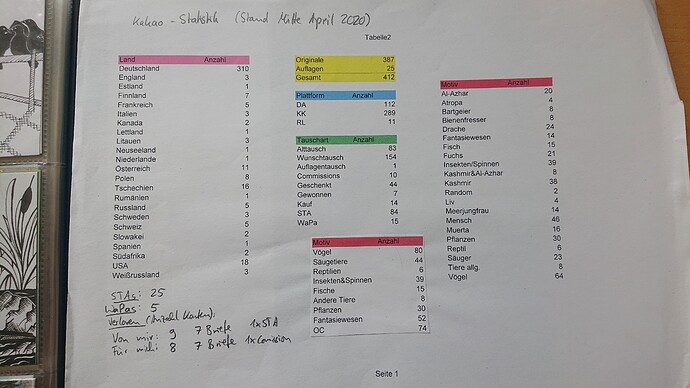 Kakao - Statistik (Stand Mitte April 2020)
Tabelle2
Land Anzahl
Deutschland 310
England 3
Estland 1
Finnland 7
Frankreich 5
Italien 3
Kanada 2
Lettland 1
Litauen 3
Neuseeland 1
Niederlande 1
Österreich 11
Polen 8
Tschechien 16
Rumänien 1
Russland 5
Schweden 3
Schweiz 5
Slowakei 2
Spanien 1
Südafrika 2
USA 18
Weißrussland 3
STAs: 25
WaPas: 5
Verloren (Anzahl Karten):
Von mir: 9 7 Briefe 1xSTA
Für mich: 8 7 Briefe 1xComission
Originale 387
Auflagen 25
Gesamt 412
Plattform Anzahl
DA 112
KK 289
RL 11
Tauschart Anzahl
Alttausch 83
Wunschtausch 154
Auflagentausch 1
Commissions 10
Geschenkt 44
Gewonnen 7
Kauf 14
STA 84
WaPa 15
Motiv Anzahl
Vögel 80
Säugetiere 44
Reptilien 6
Insekten&Spinnen 39
Fische 15
Andere Tiere 8
Pflanzen 30
Fantasiewesen 52
OC 74
Motiv Anzahl
Al-Azhar 20
Atropa 4
Bartgeier 8
Bienenfresser 8
Drache 24
Fantasiewesen 14
Fisch 15
Fuchs 21
Insekten/Spinnen 39
Kashmir&Al-Azhar 8
Kashmir 38
Random 2
Liv 4
Meerjungfrau 14
Mensch 46
Muerta 16
Pflanzen 30
Reptil 6
Säuger 23
Tiere allg. 8
Vögel 64
Seite 1